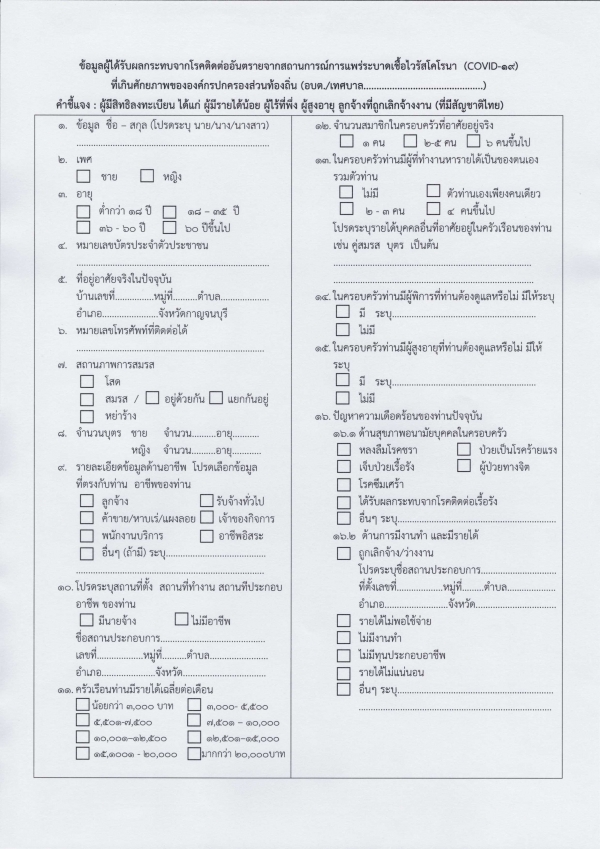 ข้อมูลผู้ได้รับผลกระทบจากโรคติดต่ออันตรายจากสถานการณ์การแพร่ระบาดเชื้อไวรัสโคโรนา (COVID-๑๙)
ที่เกินศักยภาพขององค์กรปกครองส่วนท้องถิ่น (อบต./เทศบาล........................................)
คำชี้แจง : ผู้มีสิทธิลงทะเบียน ได้แก่ ผู้มีรายได้น้อย ผู้ไร้ที่พึ่ง ผู้สูงอายุ ลูกจ้างที่ถูกเลิกจ้างงาน (ที่มีสัญชาติไทย)
๑. ข้อมูล ชื่อ – สกุล (โปรดระบุ นาย/นาง/นางสาว)
................................................................
๒. เพศ
ชาย หญิง
๓. อายุ
ต่ำกว่า ๑๘ ปี ๑๘ – ๓๕ ปี
๓๖ - ๖๐ ปี ๖๐ ปีขึ้นไป
๔. หมายเลขบัตรประจำตัวประชาชน
................................................................
๕. ที่อยู่อาศัยจริงในปัจจุบัน
บ้านเลขที่................หมู่ที่..........ตำบล....................
อำเภอ......................จังหวัดกาญจนบุรี
๖. หมายเลขโทรศัพท์ที่ติดต่อได้
................................................................
๗. สถานภาพการสมรส
โสด
สมรส / อยู่ด้วยกัน แยกกันอยู่
หย่าร้าง
๘. จำนวนบุตร ชาย จำนวน..........อายุ...........
หญิง จำนวน..........อายุ...........
๙. รายละเอียดข้อมูลด้านอาชีพ โปรดเลือกข้อมูล
ที่ตรงกับท่าน อาชีพของท่าน
ลูกจ้าง รับจ้างทั่วไป
ค้าขาย/หาบเร่/แผงลอย เจ้าของกิจการ
พนักงานบริการ อาชีพอิสระ
อื่นๆ (ถ้ามี) ระบุ........................................
................................................................
๑๐. โปรดระบุสถานที่ตั้ง สถานที่ทำงาน สถานที่ประกอบ
อาชีพ ของท่าน
มีนายจ้าง ไม่มีอาชีพ
ชื่อสถานประกอบการ........................................
เลขที่....................หมู่ที่...........ตำบล....................
อำเภอ......................จังหวัด..............................
๑๑. ครัวเรือนท่านมีรายได้เฉลี่ยต่อเดือน
น้อยกว่า ๓,๐๐๐ บาท ๓,๐๐๐- ๕,๕๐๐
๕,๕๐๑-๗,๕๐๐ ๗,๕๐๑ – ๑๐,๐๐๐
๑๐,๐๐๑–๑๒,๕๐๐ ๑๒,๕๐๑–๑๕,๐๐๐
๑๕,๑๐๐๑ - ๒๐,๐๐๐ มากกว่า ๒๐,๐๐๐บาท
๑๒. จำนวนสมาชิกในครอบครัวที่อาศัยอยู่จริง
๑ คน ๒-๕ คน ๖ คนขึ้นไป
๑๓. ในครอบครัวท่านมีผู้ที่ทำงานหารายได้เป็นของตนเอง
รวมตัวท่าน
ไม่มี ตัวท่านเองเพียงคนเดียว
๒ - ๓ คน ๔ คนขึ้นไป
โปรดระบุรายได้บุคคลอื่นที่อาศัยอยู่ในครัวเรือนของท่าน
เช่น คู่สมรส บุตร เป็นต้น
................................................................
................................................................
๑๔. ในครอบครัวท่านมีผู้พิการที่ท่านต้องดูแลหรือไม่ มีให้ระบุ
มี ระบุ..................................................
ไม่มี
๑๕. ในครอบครัวท่านมีผู้สูงอายุที่ท่านต้องดูแลหรือไม่ มีให้
ระบุ
มี ระบุ..................................................
ไม่มี
๑๖. ปัญหาความเดือดร้อนของท่านปัจจุบัน
๑๖.๑ ด้านสุขภาพอนามัยบุคคลในครอบครัว
หลงลืมโรคชรา ป่วยเป็นโรคร้ายแรง
เจ็บป่วยเรื้อรัง ผู้ป่วยทางจิต
โรคซึมเศร้า
ได้รับผลกระทบจากโรคติดต่อเรื้อรัง
อื่นๆ ระบุ..................................................
๑๖.๒ ด้านการมีงานทำ และมีรายได้
ถูกเลิกจ้าง/ว่างงาน
โปรดระบุชื่อสถานประกอบการ..............................
ที่ตั้งเลขที่................หมู่ที่..........ตำบล....................
อำเภอ......................จังหวัด..............................
รายได้ไม่พอใช้จ่าย
ไม่มีงานทำ
ไม่มีทุนประกอบอาชีพ
รายได้ไม่แน่นอน
อื่นๆ ระบุ..................................................
................................................................